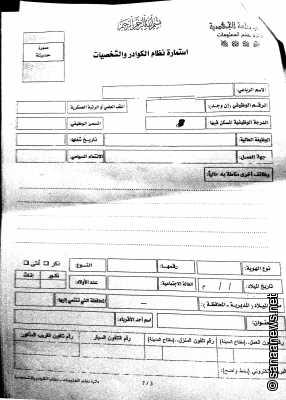 بسم الله الرحمن الرحيم
صورة
حديثة
استمارة نظام الكوادر والشخصيات
الاسم الرباعي:
الرقم الوظيفي (إن وجد):
اللقب العلمي أو الرتبة العسكرية
الدرجة الوظيفية المسكن فيها
المسمى الوظيفي:
الوظيفة الحالية:
تاريخ شغلها:
جهة العمل:
الانتماء السياسي:
وظائف أخرى مكلف بها حالياً:
نوع الهوية:
رقمها:
النوع:
ذكر
أنثى
تاريخ الميلاد:
/ / م
الحالة الاجتماعية:
عدد الأولاد:
ذكور
إناث
المحافظة التي تنتمي إليها:
اسم أحد الأقرباء:
رقم تلفون العمل
رقم تلفون المنزل
رقم التلفون السيار
رقم تلفون القريب المذكور
© sanaanews.net